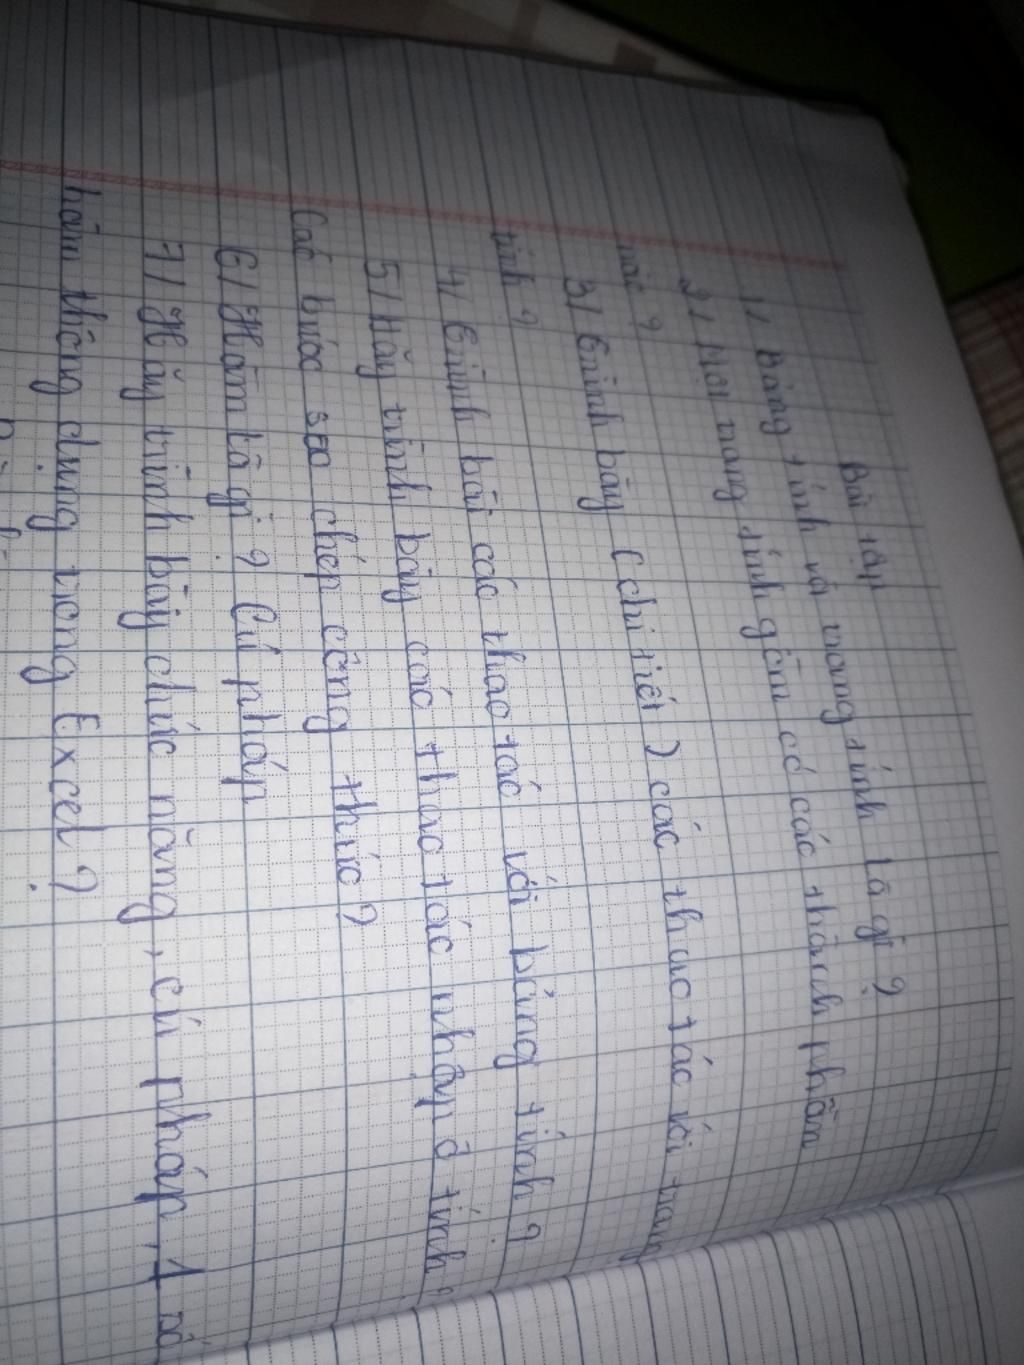 Bài tập
1/ Bảng tính và trang tính là gì ?
2/ Một trang tính gồm có các thành phần
nào ?
3/ Trình bày (chi tiết) các thao tác với trang
tính ?
4/ Trình bài các thao tác với bảng tính ?
5/ Hãy trình bày các thao tác nhập ô tính ?
Các bước sao chép công thức ?
6/ Hàm là gì ? Cú pháp
7/ Hãy trình bày chức năng, cú pháp, 1 số
hàm thông dụng trong Excel ?